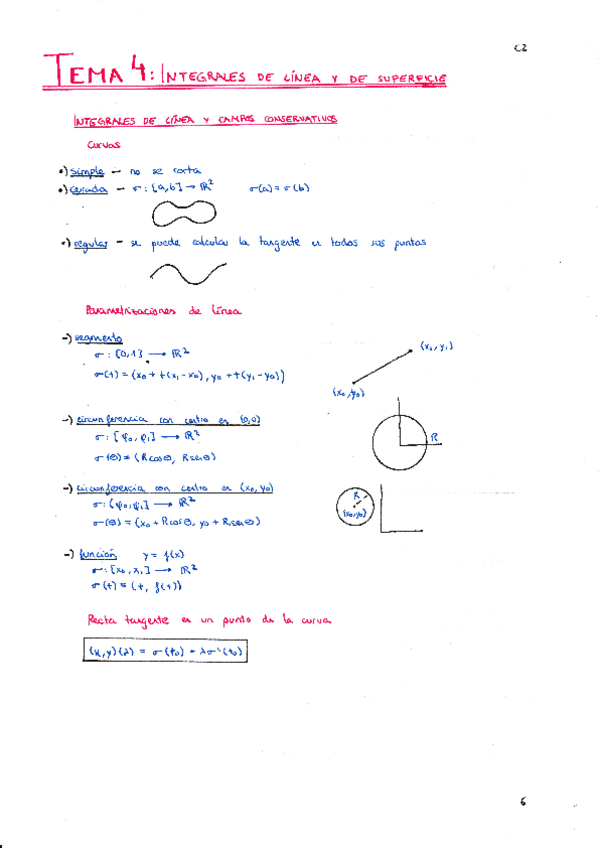 C2
TEMA 4: INTEGRALES DE LÍNEA Y DE SUPERFICIE
INTEGRALES DE LÍNEA Y CAMPOS CONSERVATIVOS
Curvas
•) simple — no se corta
•) cerrada — σ: [a,b] → ℝ² σ(a) = σ(b)
•) regular — se puede calcular la tangente en todos sus puntos
Parametrizaciones de línea
-) segmento
σ: [0,1] → ℝ²
σ(t) = (x₀ + t(x₁-x₀), y₀ + t(y₁-y₀))
(x₁, y₁)
(x₀, y₀)
-) circunferencia con centro en (0,0)
σ: [φ₀, φ₁] → ℝ²
σ(θ) = (Rcosθ, Rsenθ)
R
-) circunferencia con centro en (x₀, y₀)
σ: [φ₀, φ₁] → ℝ²
σ(θ) = (x₀ + Rcosθ, y₀ + Rsenθ)
R
(x₀,y₀)
-) función y = f(x)
σ: [x₀, x₁] → ℝ²
σ(t) = (t, f(t))
Recta tangente en un punto de la curva
(x,y)(λ) = σ(t₀) + λσ'(t₀)
6